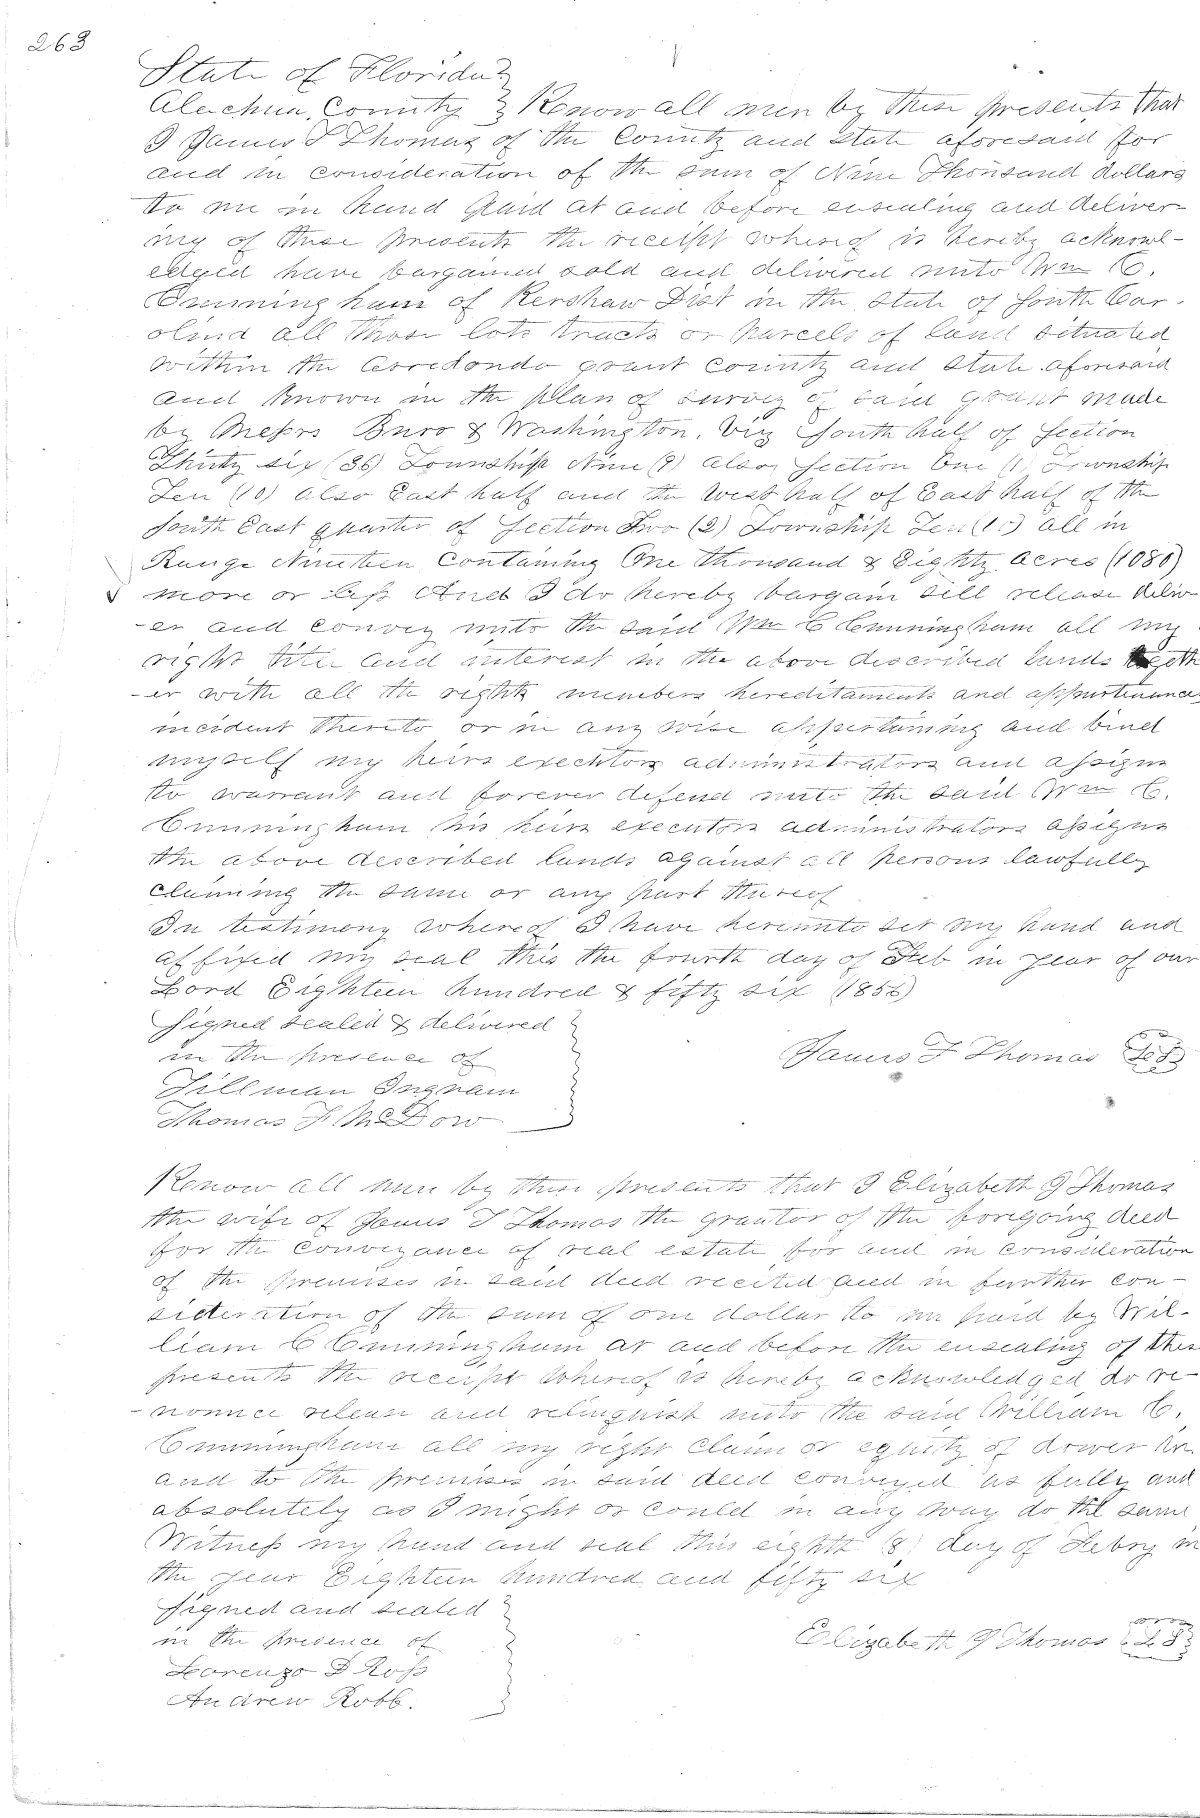 263
State of Florida }
Alachua County } Know all men by these presents that
I James T Thomas of the County and State aforesaid for
and in consideration of the sum of Nine Thousand dollars
to me in hand paid at and before ensealing and deliver-
ing of these presents the receipt whereof is hereby acknowl-
edged have bargained sold and delivered unto Wm C.
Cunningham of Kershaw Dist in the State of South Car-
olina all those lots tracts or parcels of land situated
within the Arredondo grant County and State aforesaid
and known in the plan of survey of said grant made
by Messrs Burr & Washington. Viz South half of Section
Thirty six (36) Township Nine (9) also Section One (1) Township
Ten (10) also East half and the West half of East half of the
South East quarter of Section Two (2) Township Ten (10) all in
Range Nineteen containing One thousand & Eighty acres (1080)
more or less And I do hereby bargain sell release deliv-
-er and convey unto the said Wm C Cunningham all my
right title and interest in the above described lands togeth
-er with all the rights members hereditaments and appurtenances
incident thereto or in any wise appertaining and bind
myself my heirs executors administrators and assigns
to warrant and forever defend unto the said Wm C.
Cunningham his heirs executors administrators assigns
the above described lands against all persons lawfully
claiming the same or any part thereof
In testimony whereof I have hereunto set my hand and
affixed my seal this the fourth day of Feb in year of our
Lord Eighteen hundred & fifty six (1856)
Signed sealed & delivered
in the presence of
James T Thomas {LS}
Tillman Ingram
Thomas F McDow
Know all men by these presents that I Elizabeth J Thomas
the wife of James T Thomas the grantor of the foregoing deed
for the conveyance of real estate for and in consideration
of the premises in said deed recited and in further con-
sideration of the sum of one dollar to me paid by Wil-
liam C Cunningham at and before the ensealing of these
presents the receipt whereof is hereby acknowledged do re-
-nounce release and relinquish unto the said William C.
Cunningham all my right claim or equity of dower in
and to the premises in said deed conveyed as fully and
absolutely as I might or could in any way do the same
Witness my hand and seal this eighth (8) day of Febry in
the year Eighteen hundred and fifty six
Signed and sealed
in the presence of
Elizabeth J Thomas {LS}
Lorenzo D Ross
Andrew Robb.